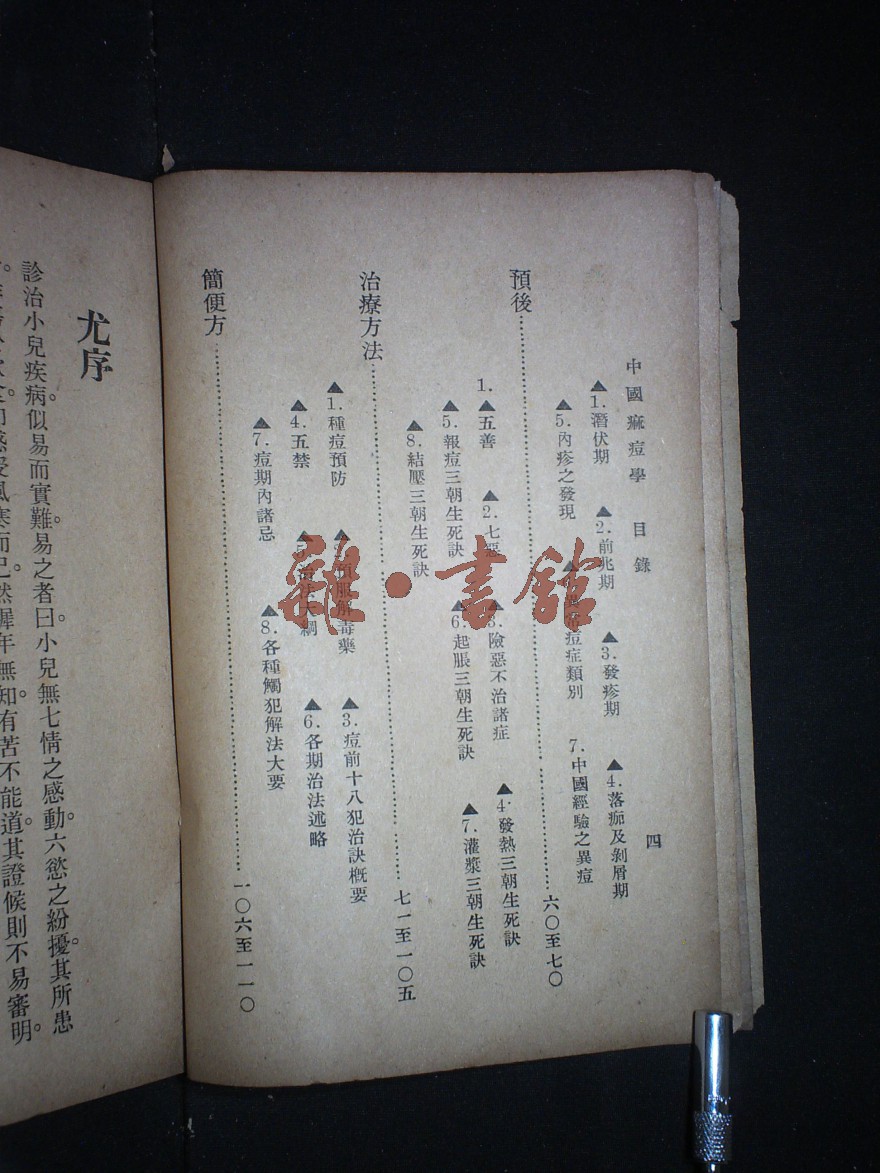 中國痲痘學 目錄 四
▲1.潛伏期 ▲2.前兆期 ▲3.發疹期 ▲4.落痂及剝屑期
▲5.內疹之發現 痘症類別 7.中國經驗之異痘
預後 六〇至七〇
1.▲五善 ▲2.七惡 ▲3.險惡不治諸症 ▲4.發熱三朝生死訣
▲5.報痘三朝生死訣 ▲6.起脹三朝生死訣 ▲7.灌漿三朝生死訣
▲8.結壓三朝生死訣
治療方法 七一至一〇五
▲1.種痘預防 預服解毒藥 ▲3.痘前十八犯治訣概要
▲4.五禁 治法大綱 ▲6.各期治法述略
▲7.痘期內諸忌 ▲8.各種觸犯解法大要
簡便方 一〇六至一一〇
尤序
診治小兒疾病。似易而實難。易之者曰。小兒無七情之感動。六慾之紛擾。其所患
感受風寒而已。然稚年無知。有苦不能道。其證候則不易審明。
雜·書館